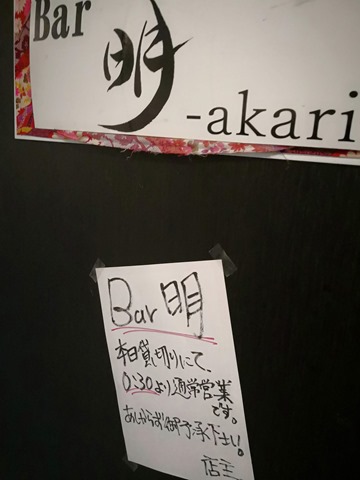 Bar
明
-akari
Bar 明
本日貸切りにて、
0:30より通常営業
です。
あしからず御予承下さい。
店主